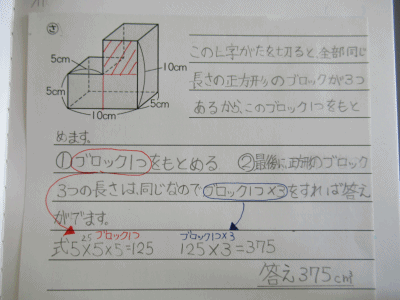 ㋐
5cm
5cm
10cm
5cm
10cm
このL字がたを切ると、全部同じ
長さの正方形のブロックが3つ
あるから、このブロック1つをもと
めます。
①ブロック1つをもとめる ②最後に正方形のブロック
3つの長さは、同じなのでブロック1つ×3をすれば答え
がでます。
25 ブロック1つ ブロック1つ×3
式5×5×5=125 125×3=375
答え375cm³